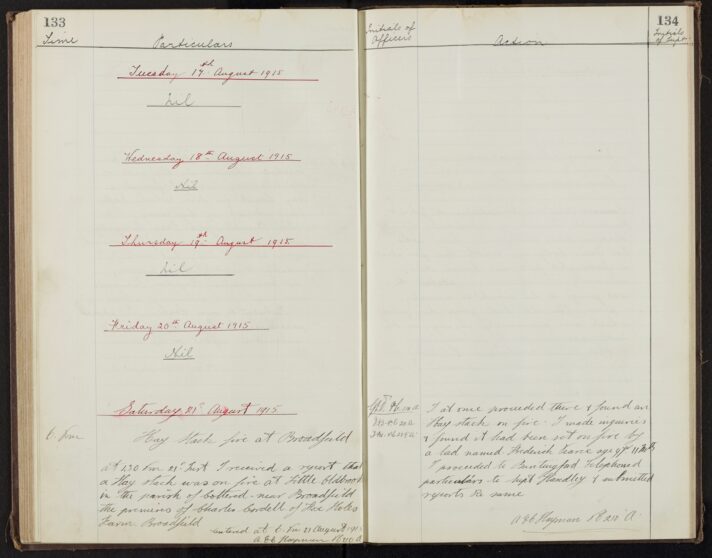 133
Time Particulars
Tuesday 17th August 1915
Nil
Wednesday 18th August 1915
Nil
Thursday 19th August 1915
Nil
Friday 20th August 1915
Nil
Saturday 21st August 1915
6. Pm Hay Stack fire at Broadfield
at 1.30 Pm 21st Inst I received a report that
a Hay Stack was on fire at Little
in the parish of Cottered near Broadfield
the premises of Charles Cordell of Fox Holes
Farm Broadfield
entered at 6. Pm 21 August 1915
A E G Hayman PC 210 A
134
Initials of Officers
Action
Initials of Supt.
I at once proceeded there & found an
Hay stack on fire. I made inquiries
& found it had been set on fire by
a lad named Frederick Pearce age
I proceeded to Buntingford Telephoned
particulars to Supt Handley & submitted
reports re same
A E G Hayman PC 210 A.